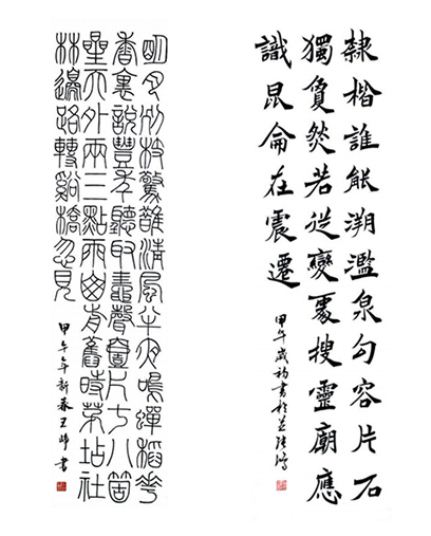 隸楷誰能溯濫泉勾容片石
獨敻然若從變裏搜靈廟應
識昆侖在震遷
甲午歲初書於
明月別枝驚鵲清風半夜鳴蟬稻花
香裏說豐年聽取鼃聲壹片七八箇
星天外兩三點雨山前舊時茅坫社
林邊路轉谿橋忽見
甲午年新春王峰書